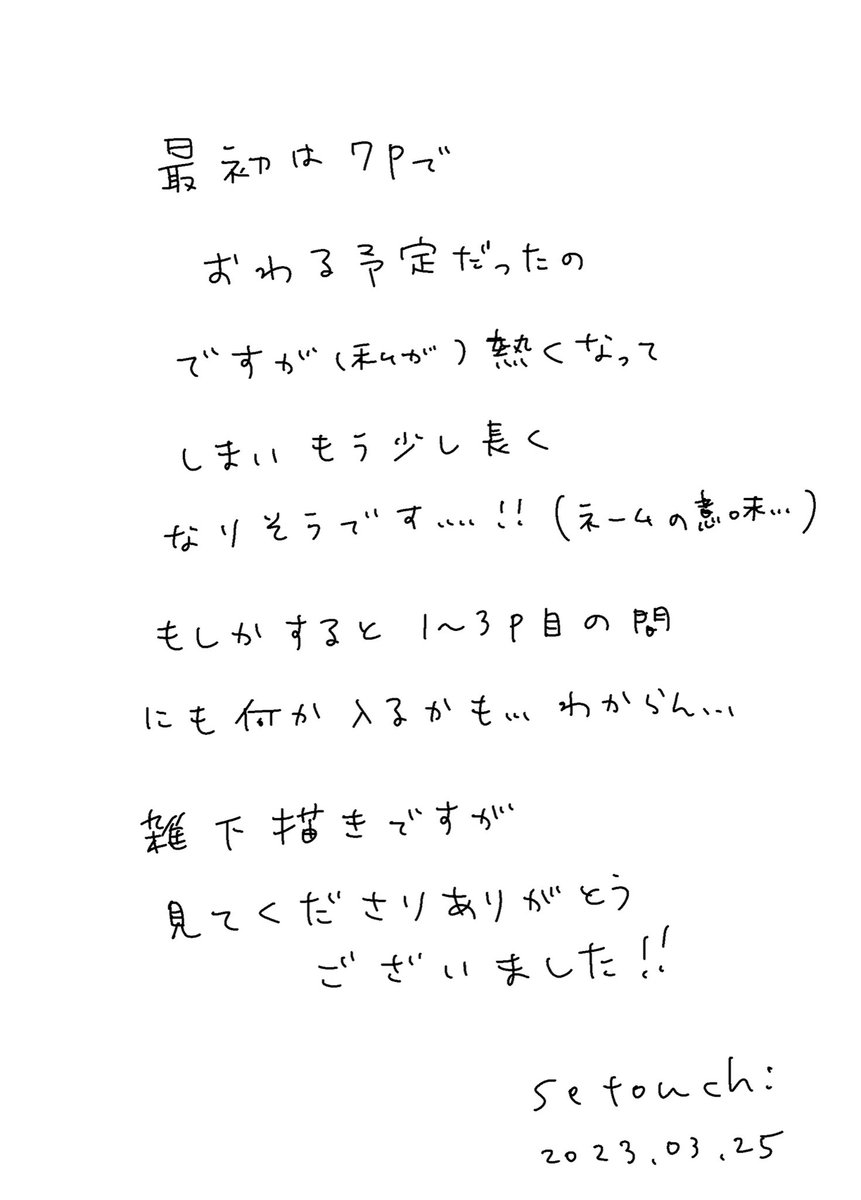 最初は7Pで
おわる予定だったの
ですが(私が)熱くなって
しまいもう少し長く
なりそうです....!!(ネームの意味...)
もしかすると1~3P目の間
にも何か入るかも...わからん...
雑下描きですが
見てくださりありがとう
ございました!!
setouchi
2023.03.25